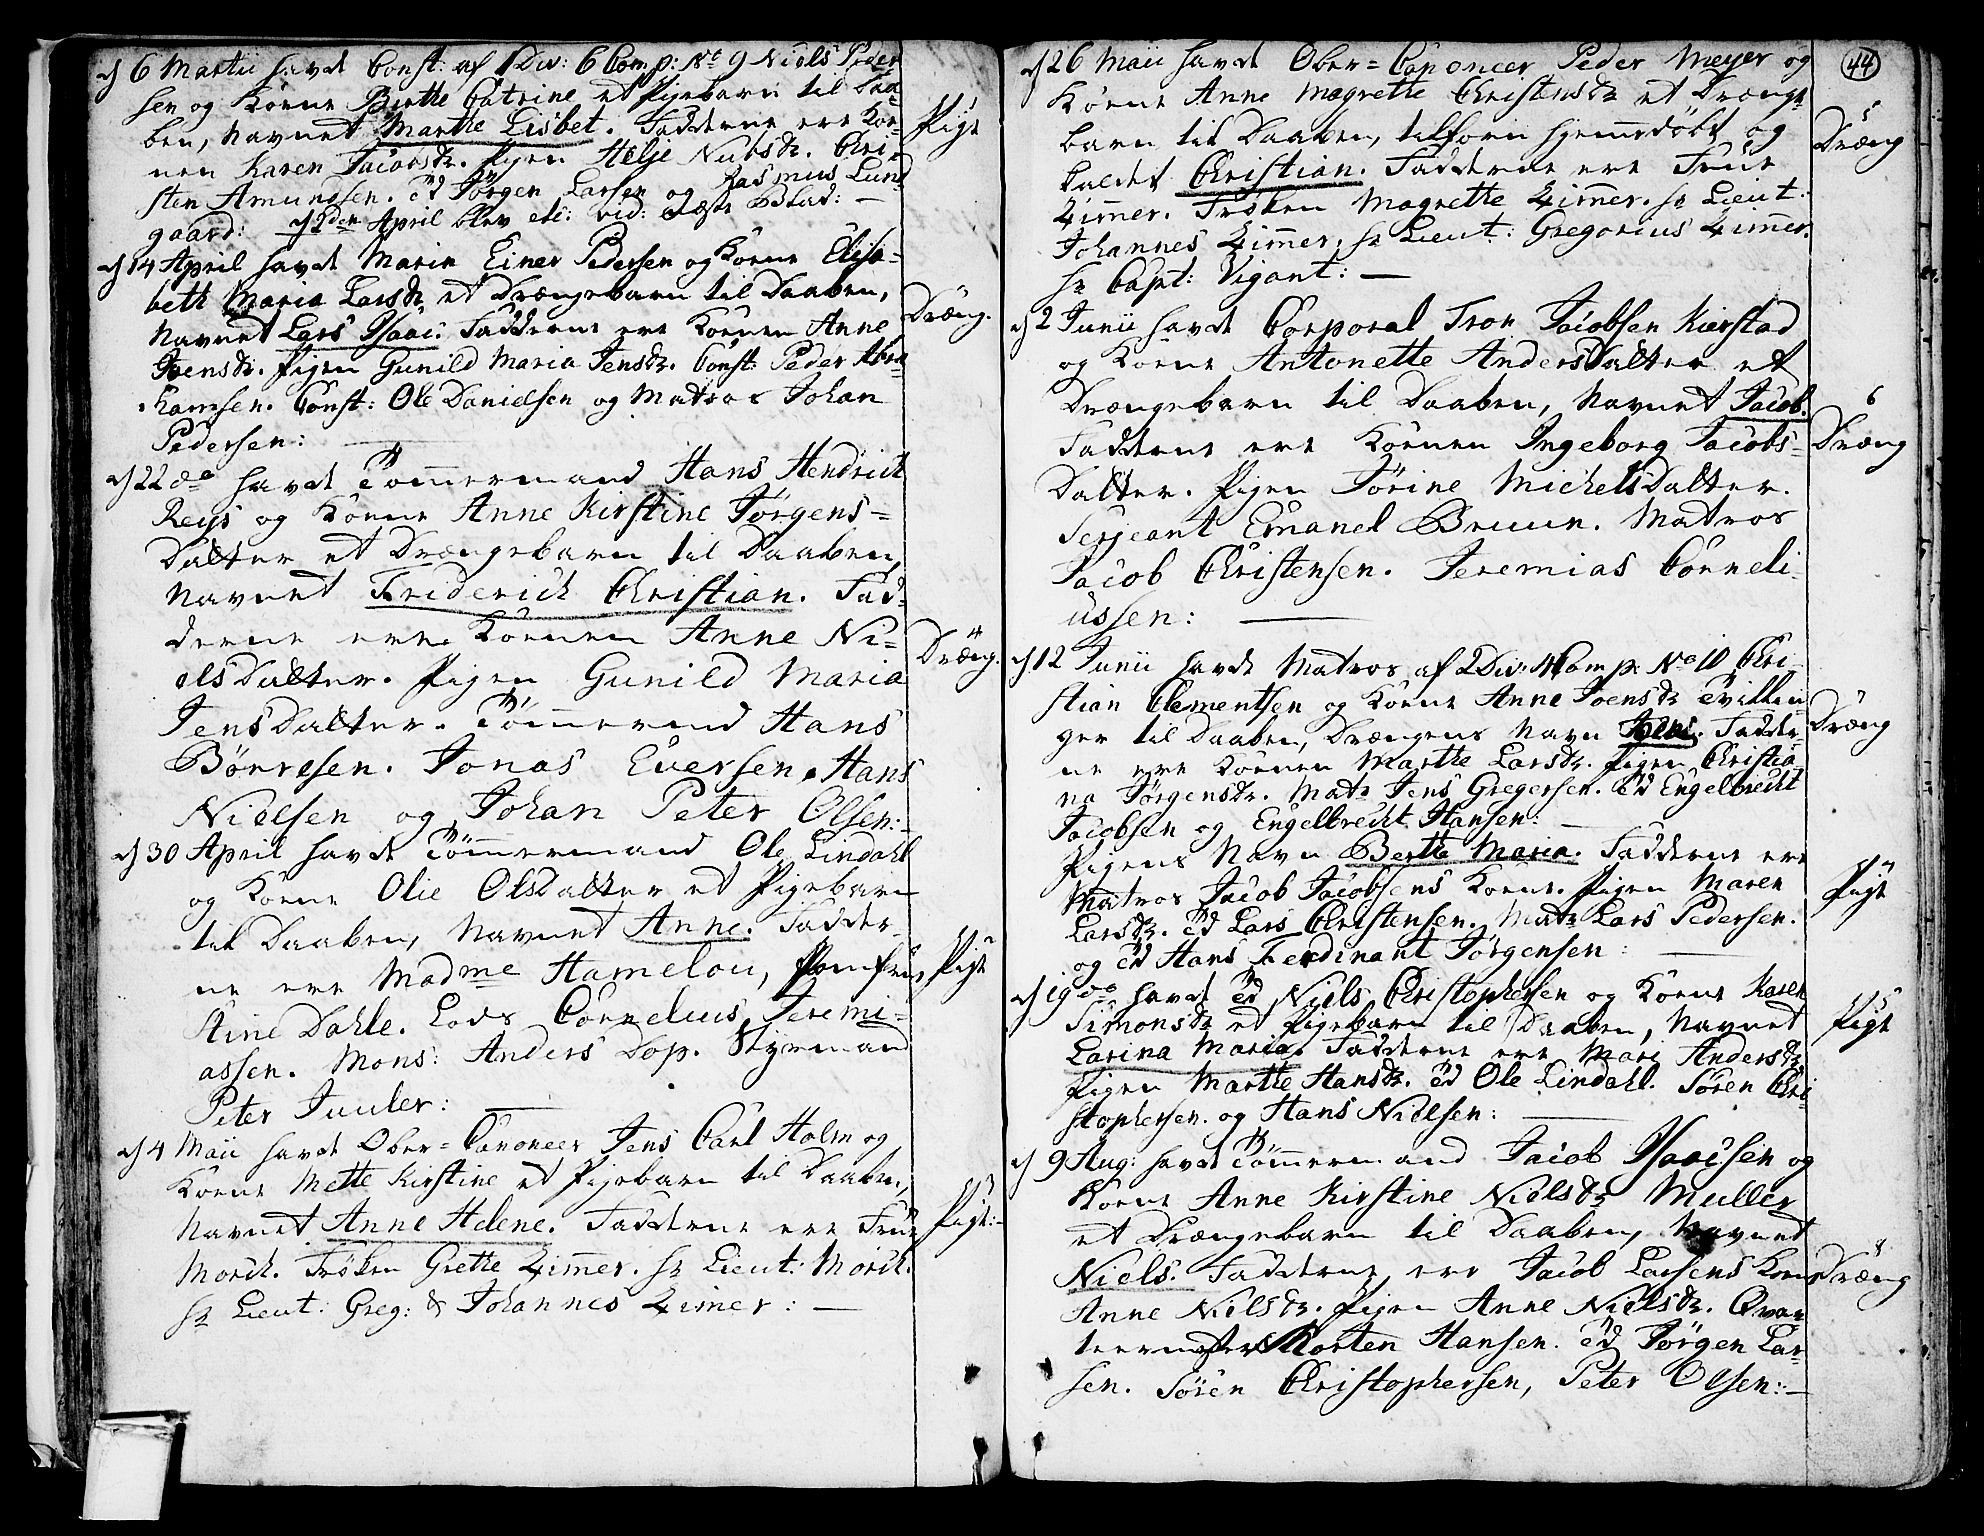 d 6 Martii havde Const: af 1 Div: 6 Comp: No 9 Niels Peder
sen og Kone Berthe Catrine et Pigebarn til Daa-
ben, Navnet Marthe Lisbet. Fadderne ere Ko-
nen Karen Jacobsdr. Pigen Helje Nubsdr. Chri-
sten Amundsen. ... Jørgen Larsen og Rasmus Lund
gaard: d 2den April blev etc: vid: næste Blad: —
Pige
d 14 April havde Marin Einer Pedersen og Kone Elisa-
beth Maria Larsdr et Drængebarn til Daaben,
Navnet Lars Isaac. Fadderne ere Konen Anne
Joensdr. Pigen Gunild Maria Jensdr. Const: Peder Abra
hamsen. Const: Ole Danielsen og Matros Johan
Pedersen: —
Dræng.
d 22 do havde Tømmermand Hans Hendrich
Reys og Kone Anne Kirstine Jørgens-
Datter et Drængebarn til Daaben,
Navnet Friderich Christian. Fad-
derne ere Konen Anne Ni-
elsDatter. Pigen Gunild Maria
JensDatter. Tømmermd Hans
Børresen. Jonas Eversen. Hans
Nielsen og Johan Peter Olsen:-
4
Dræng.
d 30 April havde Tømmermand Ole Lindahl
og Kone Olie OlsDatter et Pigebarn
til Daaben, Navnet Anne. Fadder-
ne ere Madme Hamelou, Jomfrue
Stine Dahle. Lods Cornelius Jeremi-
assen. Mons: Anders Dop. Styrmand
Peter Juuler: —
2
Pige
d 4 Maii havde Ober-Canoneer Jens Carl Holm og
Kone Mette Kirstine et Pigebarn til Daaben,
Navnet Anne Helene. Fadderne ere Frue
Morch. Frøken Grette Zimmer. Hr Lieut: Morch.
Hr Lieut: Greg: & Johannes Zimer: —
3
Pige:-
44
d 26 Maii havde Ober-Canoneer Peder Meyer og
Kone Anne Magrette Christensdr et Drænge
barn til Daaben, tilforn hjemmedøbt og
kaldet Christian. Fadderne ere Frue
Zimmer. Frøken Magrette Zimmer. Hr Lieut:
Johannes Zimmer, Hr Lieut: Gregorius Zimmer.
Hr Capt: Vigant: —
5
Dræng
d 2 Junii havde Corporal Tron Jacobsen Kierstad
og Kone Antonette AndersDatter et
Drængebarn til Daaben, Navnet Jacob.
Fadderne ere Konen Ingeborg Jacobs-
Datter. Pigen Jørine MichelsDatter.
Serjeant Emanel Bruun. Matros
Jacob Christensen. Jeremias Corneli-
ussen: —
6
Dræng
d 12 Junii havde Matros af 2 Div: 4 Comp: No 10 Chri-
stian Clementsen og Kone Anne Joensdr Tvillin-
ger til Daaben, Drængens Navn Jens. Fadder
ne ere Konen Marthe Larsdr. Pigen Christia-
na Jørgensdr. Matr Jens Gregersen. ... Engelbrecht
Jacobsen og Engelbrecht Hansen: —
Dræng
Pigens Navn Berthe Maria. Fadderne ere
Matros Jacob Jacobsens Kone. Pigen Maren
Larsdr. ... Lars Christensen. Matr Lars Pedersen.
og ... Hans Ferdinant Jørgensen: —
4
Pige
d 19 do havde ... Niels Christophersen og Kone Karen
Simonsdr et Pigebarn til Daaben, Navnet
Larina Maria. Fadderne ere Mari Andersdr
Pigen Marthe Hansdr. ... Ole Lindahl. Søren Chri-
stophersen. og Hans Nielsen: —
5
Pige
d 9 Aug: havde Tømmermand Jacob Isacsen og
Kone Anne Kirstine Nielsdr Muller
et Drængebarn til Daaben, Navnet
Niels. Fadderne ere Jacob Larsens Kone
Anne Nielsdr. Pigen Anne Nielsdr. Qvar
teermester Morten Hansen. ... Jørgen Lar-
sen. Søren Christophersen, Peter Olsen:—
8
Dræng